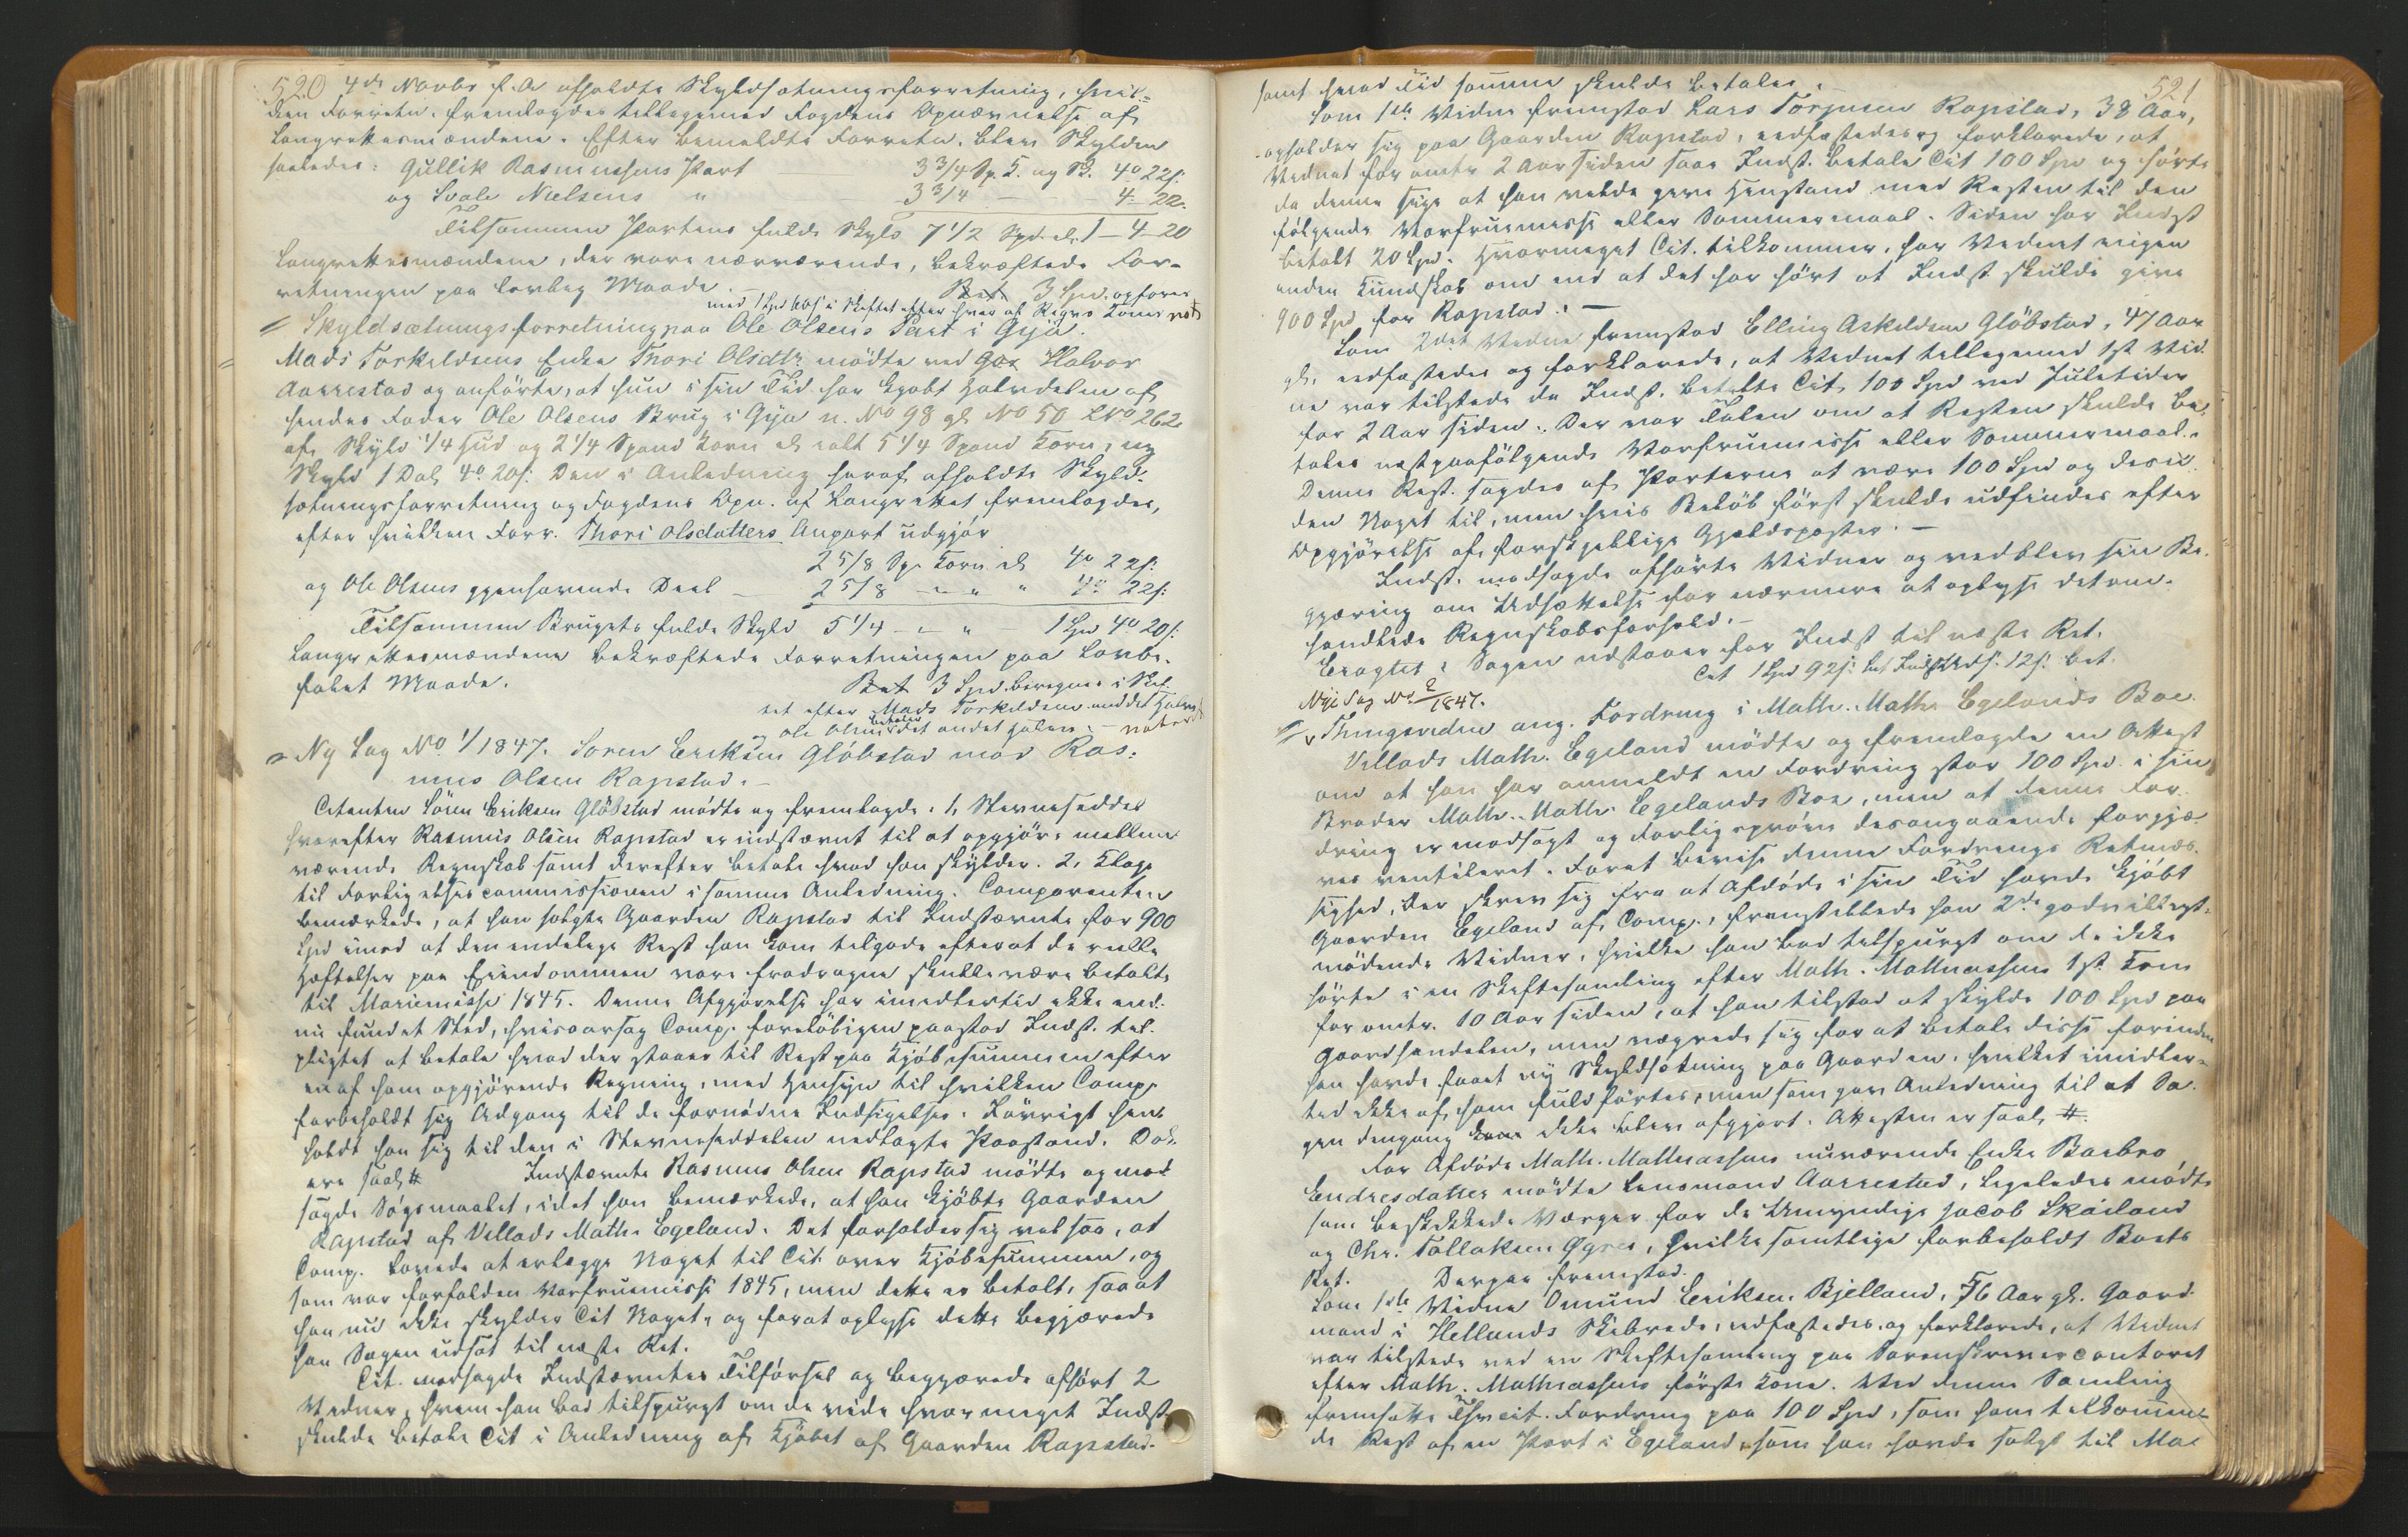 520 4de Novbr f. A. afholdte Skyldsætningsforretning, hvil-
ken Forretn. fremlagdes tilligemed Fogdens Opnævnelse af
Laugrettesmændene. Efter bemeldte Forretn. blev Skylden
saaledes: Gullik Rasmussens Part 3 3/4 Sp. K. ny B. 4 o 22 s:
og Svale Nielsens " 3 3/4 — 4 — 22.
Tilsammen Partens fulde Skyld 7 1/2 Spd. el. 1 — 4 — 20
Laugrettesmændene, der vare nærværende, bekræftede For-
retningen paa lovlig Maade.
Bet. 3 Spd. opføres
med 1 Spd 60 s i Skiftet efter hver af Kones not
Skyldsætningsforretning paa Ole Olsens Part i Gya.
Mads Torkeldsens Enke Thori Olsdtr mödte ved Halvor
Aarrestad og anförte, at hun i sin Tid har kjøbt Halvdelen af
hendes Fader Ole Olsens Brug i Gya n. No 98 gl. No 50 LNo 262
af Skyld 1/4 Hud og 2 1/4 Spand Korn el ialt 5 1/4 Spand Korn, ny
Skyld 1 Dal 4 o 20 s: Den i Anledning heraf afholdte Skyld-
sætningsforretning og Fogdens Opn. af Laugrettet fremlagdes,
efter hvilken Forr. Thori Olsdatters Anpart udgjör
2 5/8 Sp. Korn el 4 o 22 s:
og Ole Olsens gjenhavende Deel — 2 5/8 — " " 4 o 22 s:
Tilsammen Brugets fulde Skyld 5 1/4 — " 1 Spd 4 o 20 s:
Laugrettesmændene bekræftede Forretningen paa lovbe-
falet Maade.
Bet. 3 Spd. beregnes i Skif-
tet efter Mads Torkeldsen med det Halve
og Ole Olsen betaler det andet Halve. — noteret
Ny Sag No 1/1847. Soren Eriksen Glöbstad mod Ras-
mus Olsen Rapstad. —
Citanten Sören Eriksen Glöbstad mödte og fremlagde: 1, Stevneseddel
hvorefter Rasmus Olsen Rapstad er indstævnt til at opgjöre mellem-
værende Regnskab samt derefter betale hvad han skylder. 2, Klage
til Forligelsescommissionen i samme Anledning. Comparenten
bemærkede, at han solgte Gaarden Rapstad til Indstævnte for 900
Spd imod at den endelige Rest han kom tilgode efterat de reelle
Hæftelser paa Eiendommen vare fradragne skulde være betalte
til Mariemisse 1845. Denne Afgjörelse har imidlertid ikke end-
nu fundet Sted, hvisaarsag Comp. forelöbigen paastod Indst. til-
pligtet at betale hvad der staaer til Rest paa Kjöbesummen efter
en af ham opgjörende Regning, med Hensyn til hvilken Comp.
forbeholdt sig Adgang til de fornödne Indsigelser. Iövrigt hen-
holdt han sig til den i Stevneseddelen nedlagte Paastand. Dok.
ere saal. # Indstævnte Rasmus Olsen Rapstad mödte og mod
sagde Sögsmaalet, idet han bemærkede, at han kjöbte Gaarden
Rapstad af Vellads Math. Egeland. Det forholder sig vel saa, at
Comp. lovede at erlægge Noget til Cit. over Kjöbesummen, og
som var forfalden Vorfruemisse 1845, men dette er betalt, saa at
han nu ikke skylder Cit Noget, og forat oplyse dette begjærede
han Sagen udsat til næste Ret.
Cit. modsagde Indstævntes Tilförsel og begjærede afhört 2
Vidner, hvem han bad tilspurgt om de vide hvor meget Indst.
skulde betale Cit i Anledning af Kjöbet af Gaarden Rapstad.
samt hvad Tid samme skulde betales. 521
Som 1ste Vidne fremstod Lars Torjusen Rapstad, 38 Aar,
opholder sig paa Gaarden Rapstad, eedfæstedes og forklarede, at
Vidnet for omtr 2 Aar siden saae Indst. betale Cit 100 Spd og hörte
da denne sige at han vilde give Henstand med Resten til den
fölgende Vorfruemisse eller Sommermaal. Siden har Indst
betalt 20 Spd. Hvormeget Cit. tilkommer, har Vidnet ingen
anden Kundskab om end at det har hört at Indst skulde give
900 Spd for Rapstad. —
Som 2det Vidne fremstod Elling Askildsen Glöbstad, 47 Aar
gl. eedfæstedes og forklarede, at Vidnet tilligemed 1st Vid-
ne var tilstede da Indst. betalte Cit. 100 Spd ved Juletider
for 2 Aar siden. Der var Talen om at Resten skulde be-
tales næstpaafölgende Vorfruemisse eller Sommermaal.
Denne Rest sagdes af Parterne at være 100 Spd og desu-
den Noget til, men hvis Belöb först skulde udfindes efter
Opgjörelse af forskjellige Gjældsposter. —
Indst. modsagde afhörte Vidner og vedblev sin Be-
gjæring om Udsættelse for nærmere at oplyse det om-
handlede Regnskabsforhold. —
Eragtet: Sagen udstaaer for Indst til næste Ret.
Cit 1 Spd 92 s: bet. Indst Uds. 12 s: bet.
Nye Sag No 2/1847.
Thingsvidne ang. Fordring i Math. Maths Egelands Boe.
Vellads Math. Egeland mödte og fremlagde en Attest
om at han har anmeldt en Fordring stor 100 Spd. i sin
Broder Math. Maths Egelands Boe, men at denne For-
dring er modsagt og Forligspröve desangaaende forgjæ-
ves ventileret. Forat bevise denne Fordrings Retmæs-
sighed, der skrev sig fra at Afdöde i sin Tid havde kjöbt
Gaarden Egeland af Comp., fremstillede han 2de godvilligt-
mödende Vidner, hvilke han bad tilspurgt om de ikke
hörte i en Skiftesamling efter Math. Mathiassens 1st Kone
for omtr. 10 Aar siden, at han tilstod at skylde 100 Spd paa
Gaardhandelen, men vægrede sig for at betale disse forinden
han havde faaet ny Skyldsætning paa Gaarden, hvilket imidler-
tid ikke af ham fuldförtes, men som gav Anledning til at Sa-
gen dengang ikke blev afgjort. Attesten er saal. #.
For Afdöde Math. Mathiassens nuværende Enke Barbro
Endresdatter mödte Lensmand Aarrestad, ligeledes mödte
som beskikkede Værger for de Umyndige Jacob Skaaland
og Chr. Tollaksen Øgreid, hvilke samtlige forbeholdt Boets
Ret. Derpaa fremstod.
Som 1ste Vidne Omund Eriksen Bjelland, 56 Aar gl. Gaard-
mand i Hellands Skibrede, edfæstedes, og forklarede, at Vidnet
var tilstede ved en Skiftesamling paa Sorenskrivercontoret
efter Math. Mathiassens förste Kone. Ved denne Samling
fremsatte Fordring paa 100 Spd, som ham tilkommen-
de Rest af en Part i Egeland, som han havde solgt til Ma-